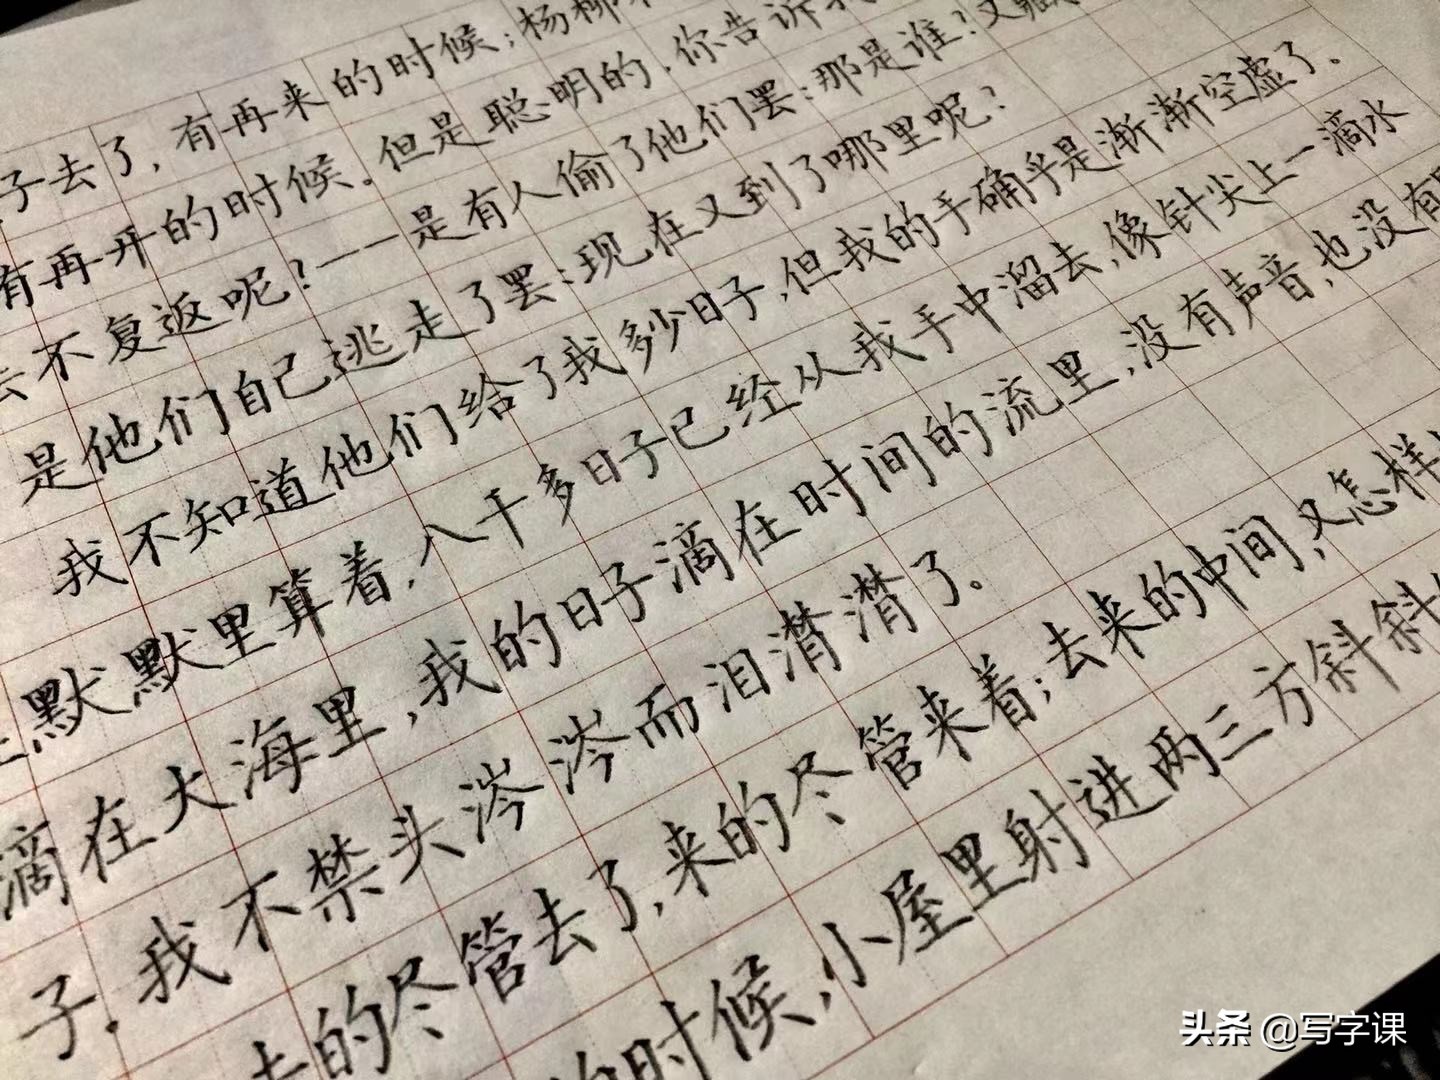 子去了,有再来的时候;杨柳
有再开的时候。但是聪明的,你告诉我
去不复返呢?——是有人偷了他们罢:那是谁?又藏
是他们自己逃走了罢:现在又到了哪里呢?
我不知道他们给了我多少日子,但我的手确乎是渐渐空虚了。
默默里算着,八千多日子已经从我手中溜去,像针尖上一滴水
滴在大海里,我的日子滴在时间的流里,没有声音,也没有
子。我不禁头涔涔而泪潸潸了。
去的尽管去了,来的尽管来着;去来的中间,又怎样
的时候,小屋里射进两三方斜斜
头条 @写字课